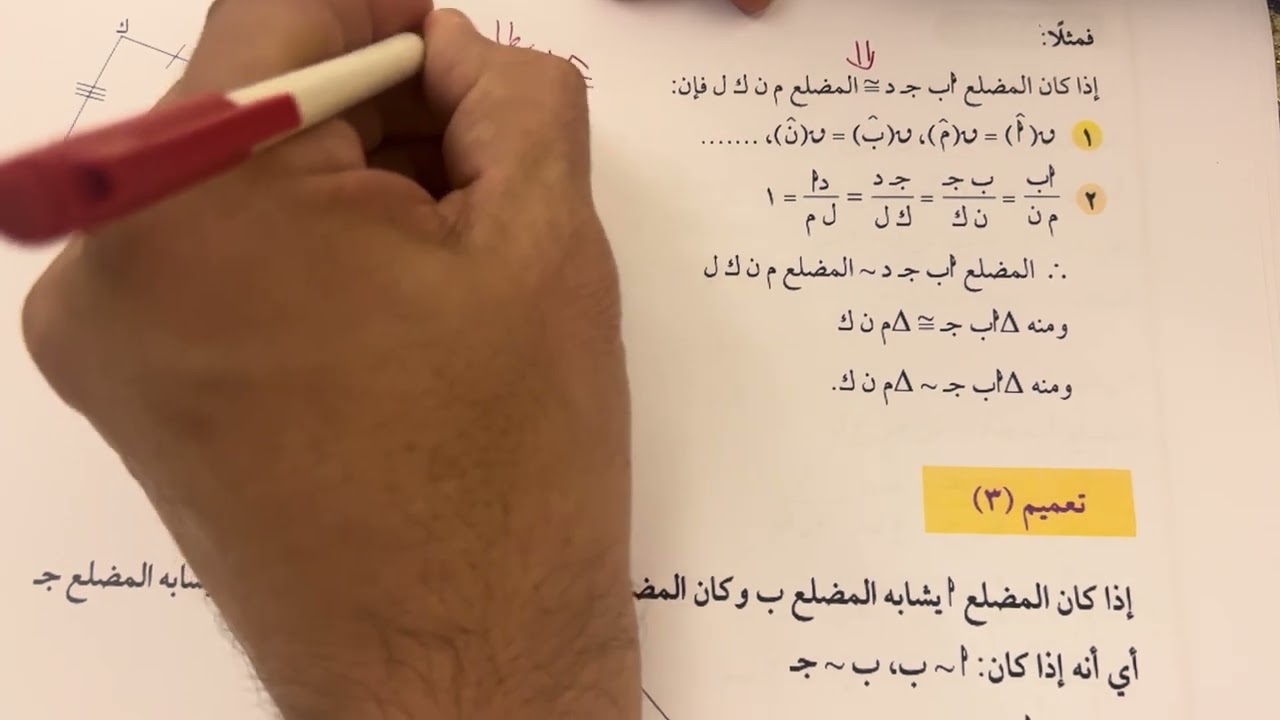 ك
فمثلًا:
إذا كان المضلع أ ب جـ د ≅ المضلع م ن ك ل فإن:
١ ق(أ̂) = ق(م̂)، ق(ب̂) = ق(ن̂)، .......
٢ أ ب / م ن = ب جـ / ن ك = جـ د / ك ل = د أ / ل م = ١
∴ المضلع أ ب جـ د ~ المضلع م ن ك ل
ومنه Δ أ ب جـ ≅ Δ م ن ك
ومنه Δ أ ب جـ ~ Δ م ن ك.
تعميم (٣)
إذا كان المضلع أ يشابه المضلع ب وكان المضـ يشابه المضلع جـ
أي أنه إذا كان: أ ~ ب، ب ~ جـ